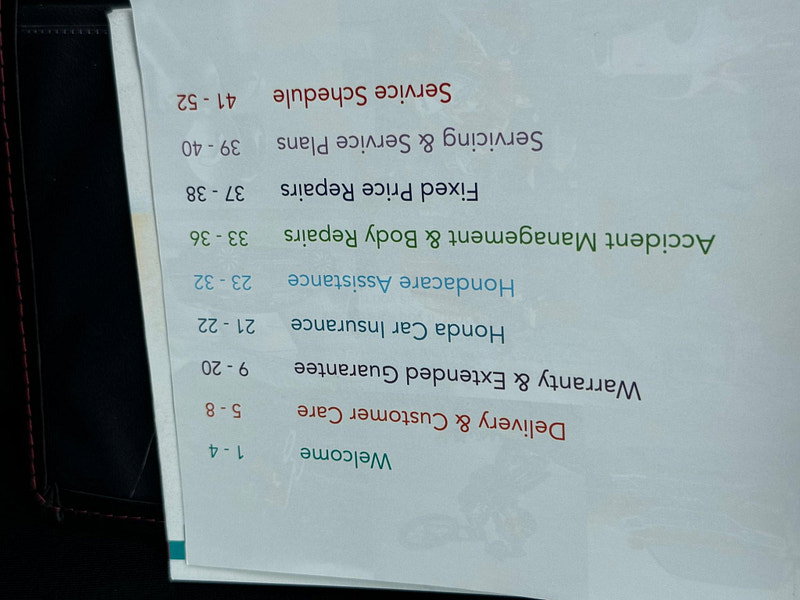 Welcome 1 - 4
Delivery & Customer Care 5 - 8
Warranty & Extended Guarantee 9 - 20
Honda Car Insurance 21 - 22
Hondacare Assistance 23 - 32
Accident Management & Body Repairs 33 - 36
Fixed Price Repairs 37 - 38
Servicing & Service Plans 39 - 40
Service Schedule 41 - 52